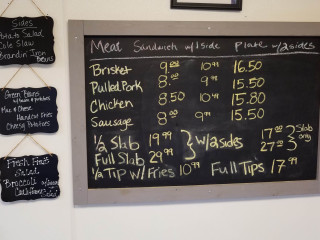 Sides
Potato Salad
Cole Slaw
Brandin Iron Beans
Green Beans
w/ bacon & potatoes
Mac & Cheese
Handcut Fries
Cheesy Potatoes
Fresh Fruit
Salad
Broccoli
Meat Sandwich w/1 side Plate w/2 sides
Brisket 9.00 10.99 16.50
Pulled Pork 8.00 9.99 15.50
Chicken 8.50 10.49 15.80
Sausage 8.00 9.99 15.50
1/2 Slab 19.99 } w/2 sides 17.00 } Slab only
Full Slab 29.99 27.00
1/2 Tip w/ Fries 10.99 Full Tips 17.99